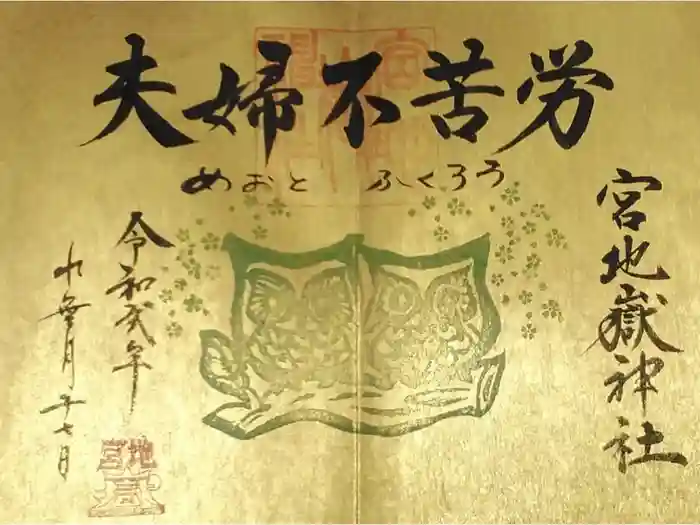 夫婦不苦労
めおと ふくろう
宮地嶽神社
令和弐年
十七日
宮地